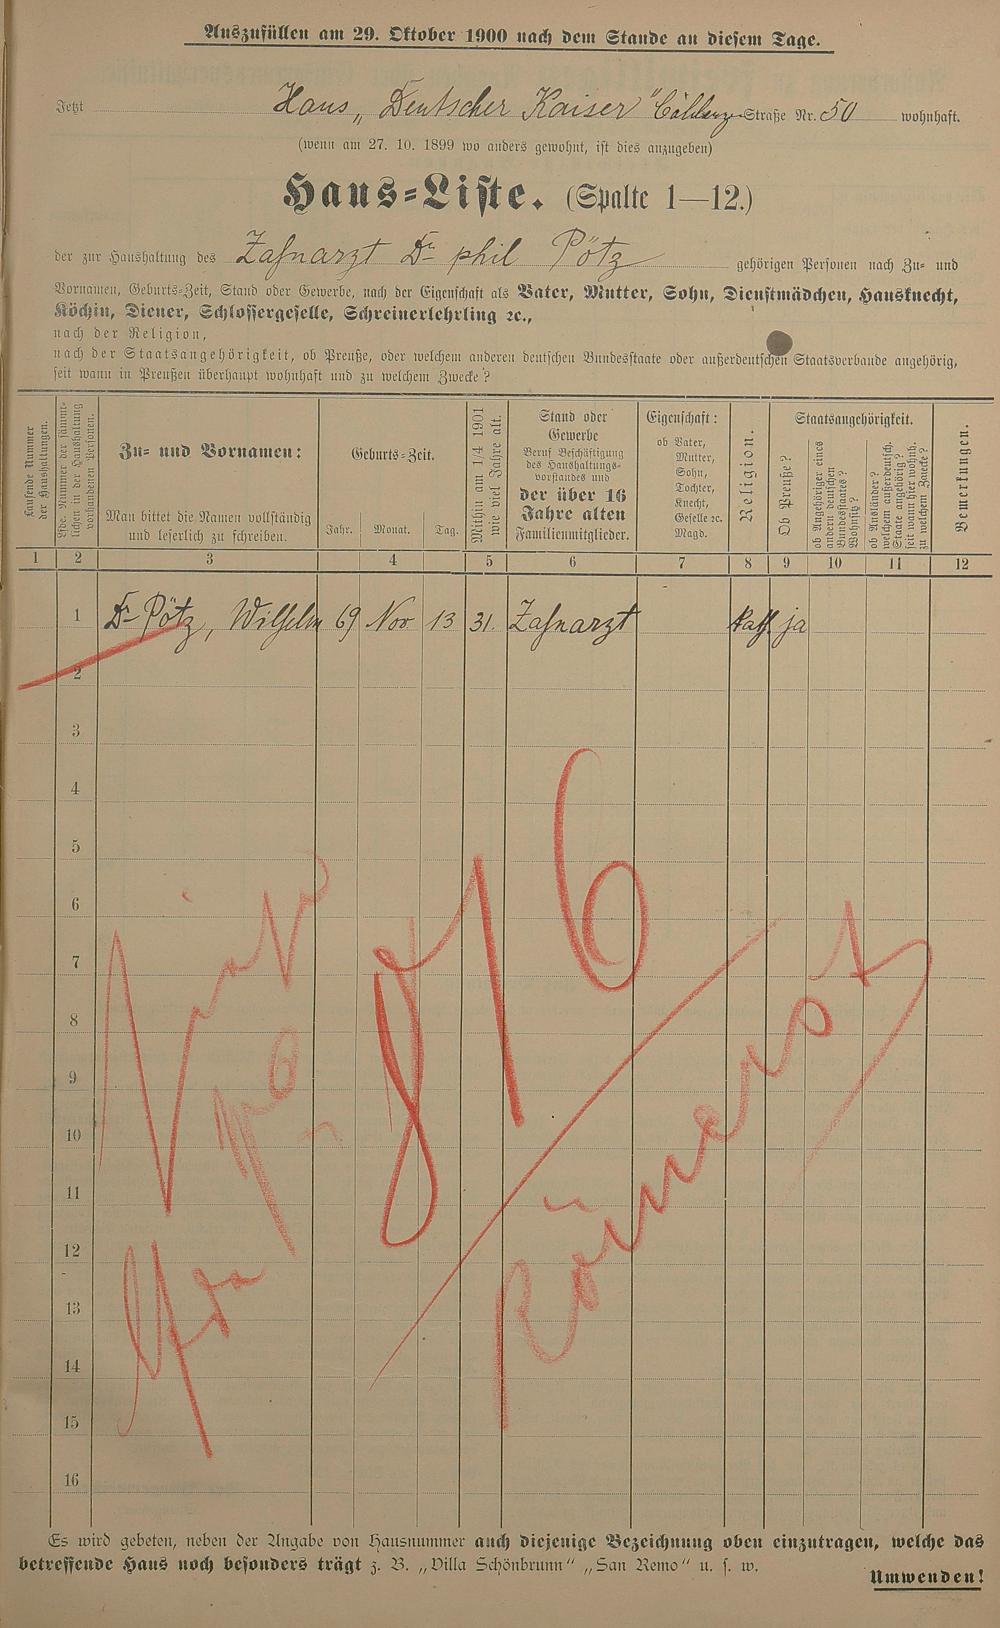 Auszufüllen am 29. Oktober 1900 nach dem Stande an diesem Tage.
Jetzt Haus „Deutscher Kaiser" Straße Nr. 50 wohnhaft.
(wenn am 27. 10. 1899 wo anders gewohnt, ist dies anzugeben)
Haus-Liste. (Spalte 1—12.)
der zur Haushaltung des Zahnarzt Dr phil Pötz gehörigen Personen nach Zu- und
Vornamen, Geburts-Zeit, Stand oder Gewerbe, nach der Eigenschaft als Vater, Mutter, Sohn, Dienstmädchen, Hausknecht,
Köchin, Diener, Schlossergeselle, Schreinerlehrling ꝛc.,
nach der Religion,
nach der Staatsangehörigkeit, ob Preuße, oder welchem anderen deutschen Bundesstaate oder außerdeutschen Staatsverbande angehörig,
seit wann in Preußen überhaupt wohnhaft und zu welchem Zwecke?
Laufende Nummer
der Haushaltungen.
Lfde. Nummer der sämmt-
lichen in der Haushaltung
vorhandenen Personen.
Zu- und Vornamen:
Man bittet die Namen vollständig
und leserlich zu schreiben.
Geburts-Zeit.
Jahr. Monat. Tag.
Mithin am 1/4 1901
wie viel Jahre alt.
Stand oder
Gewerbe
Beruf Beschäftigung
des Haushaltungs-
vorstandes und
der über 16
Jahre alten
Familienmitglieder.
Eigenschaft:
ob Vater,
Mutter,
Sohn,
Tochter,
Knecht,
Geselle ꝛc.
Magd.
Religion.
Staatsangehörigkeit.
Ob Preuße?
ob Angehöriger eines
andern deutschen
Bundesstaates?
Wohnsitz?
ob Ausländer?
welchem außerdeutsch.
Staate angehörig?
seit wann hier wohnh.
zu welchem Zwecke?
Bemerkungen.
1 2 3 4 5 6 7 8 9 10 11 12
1 Dr Pötz, Wilhelm 69 Nov. 13 31. Zahnarzt Kath. ja
2
3
4
5
6
7
8
9
10
11
12
13
14
15
16
816
Es wird gebeten, neben der Angabe von Hausnummer auch diejenige Bezeichnung oben einzutragen, welche das
betreffende Haus noch besonders trägt z. B. „Villa Schönbrunn" „San Remo" u. s. w.
Umwenden!